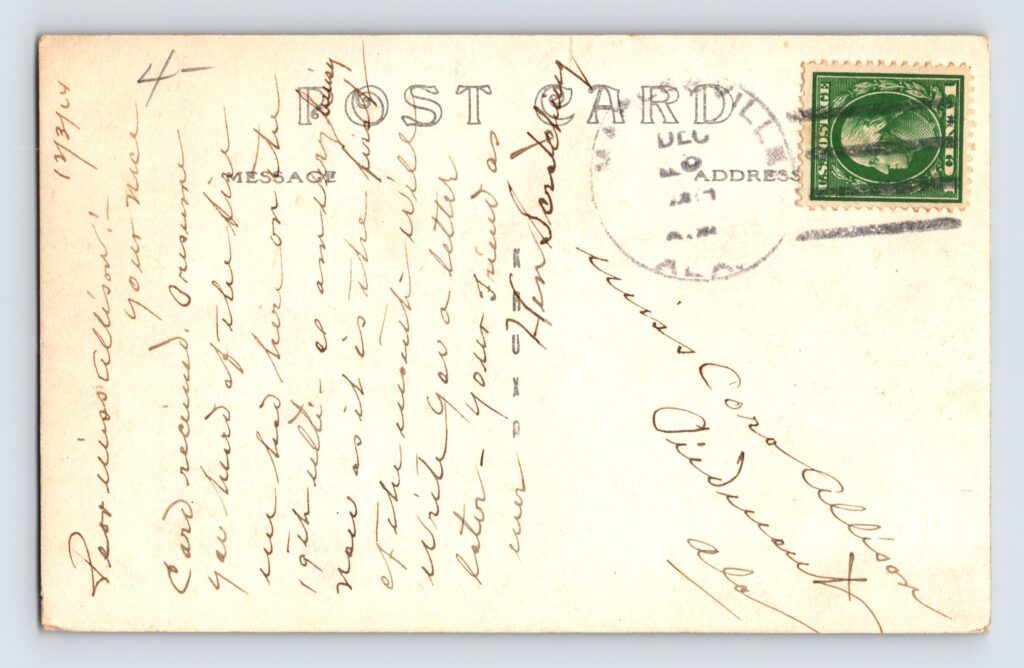 4-
POST CARD
MESSAGE
ADDRESS
DEC
ALA.
U.S. POSTAGE
1 CENT 1
12/3/14
Dear Miss Allison:-
Your nice
Card received. Presume
you heard of the fire
we had here on the
19th ulti- I am very busy
now as it is the first
of the month will
write you a letter
later- Your Friend as
ever
Hen Scratchey
Miss Cora Allison
Piedmont
Ala